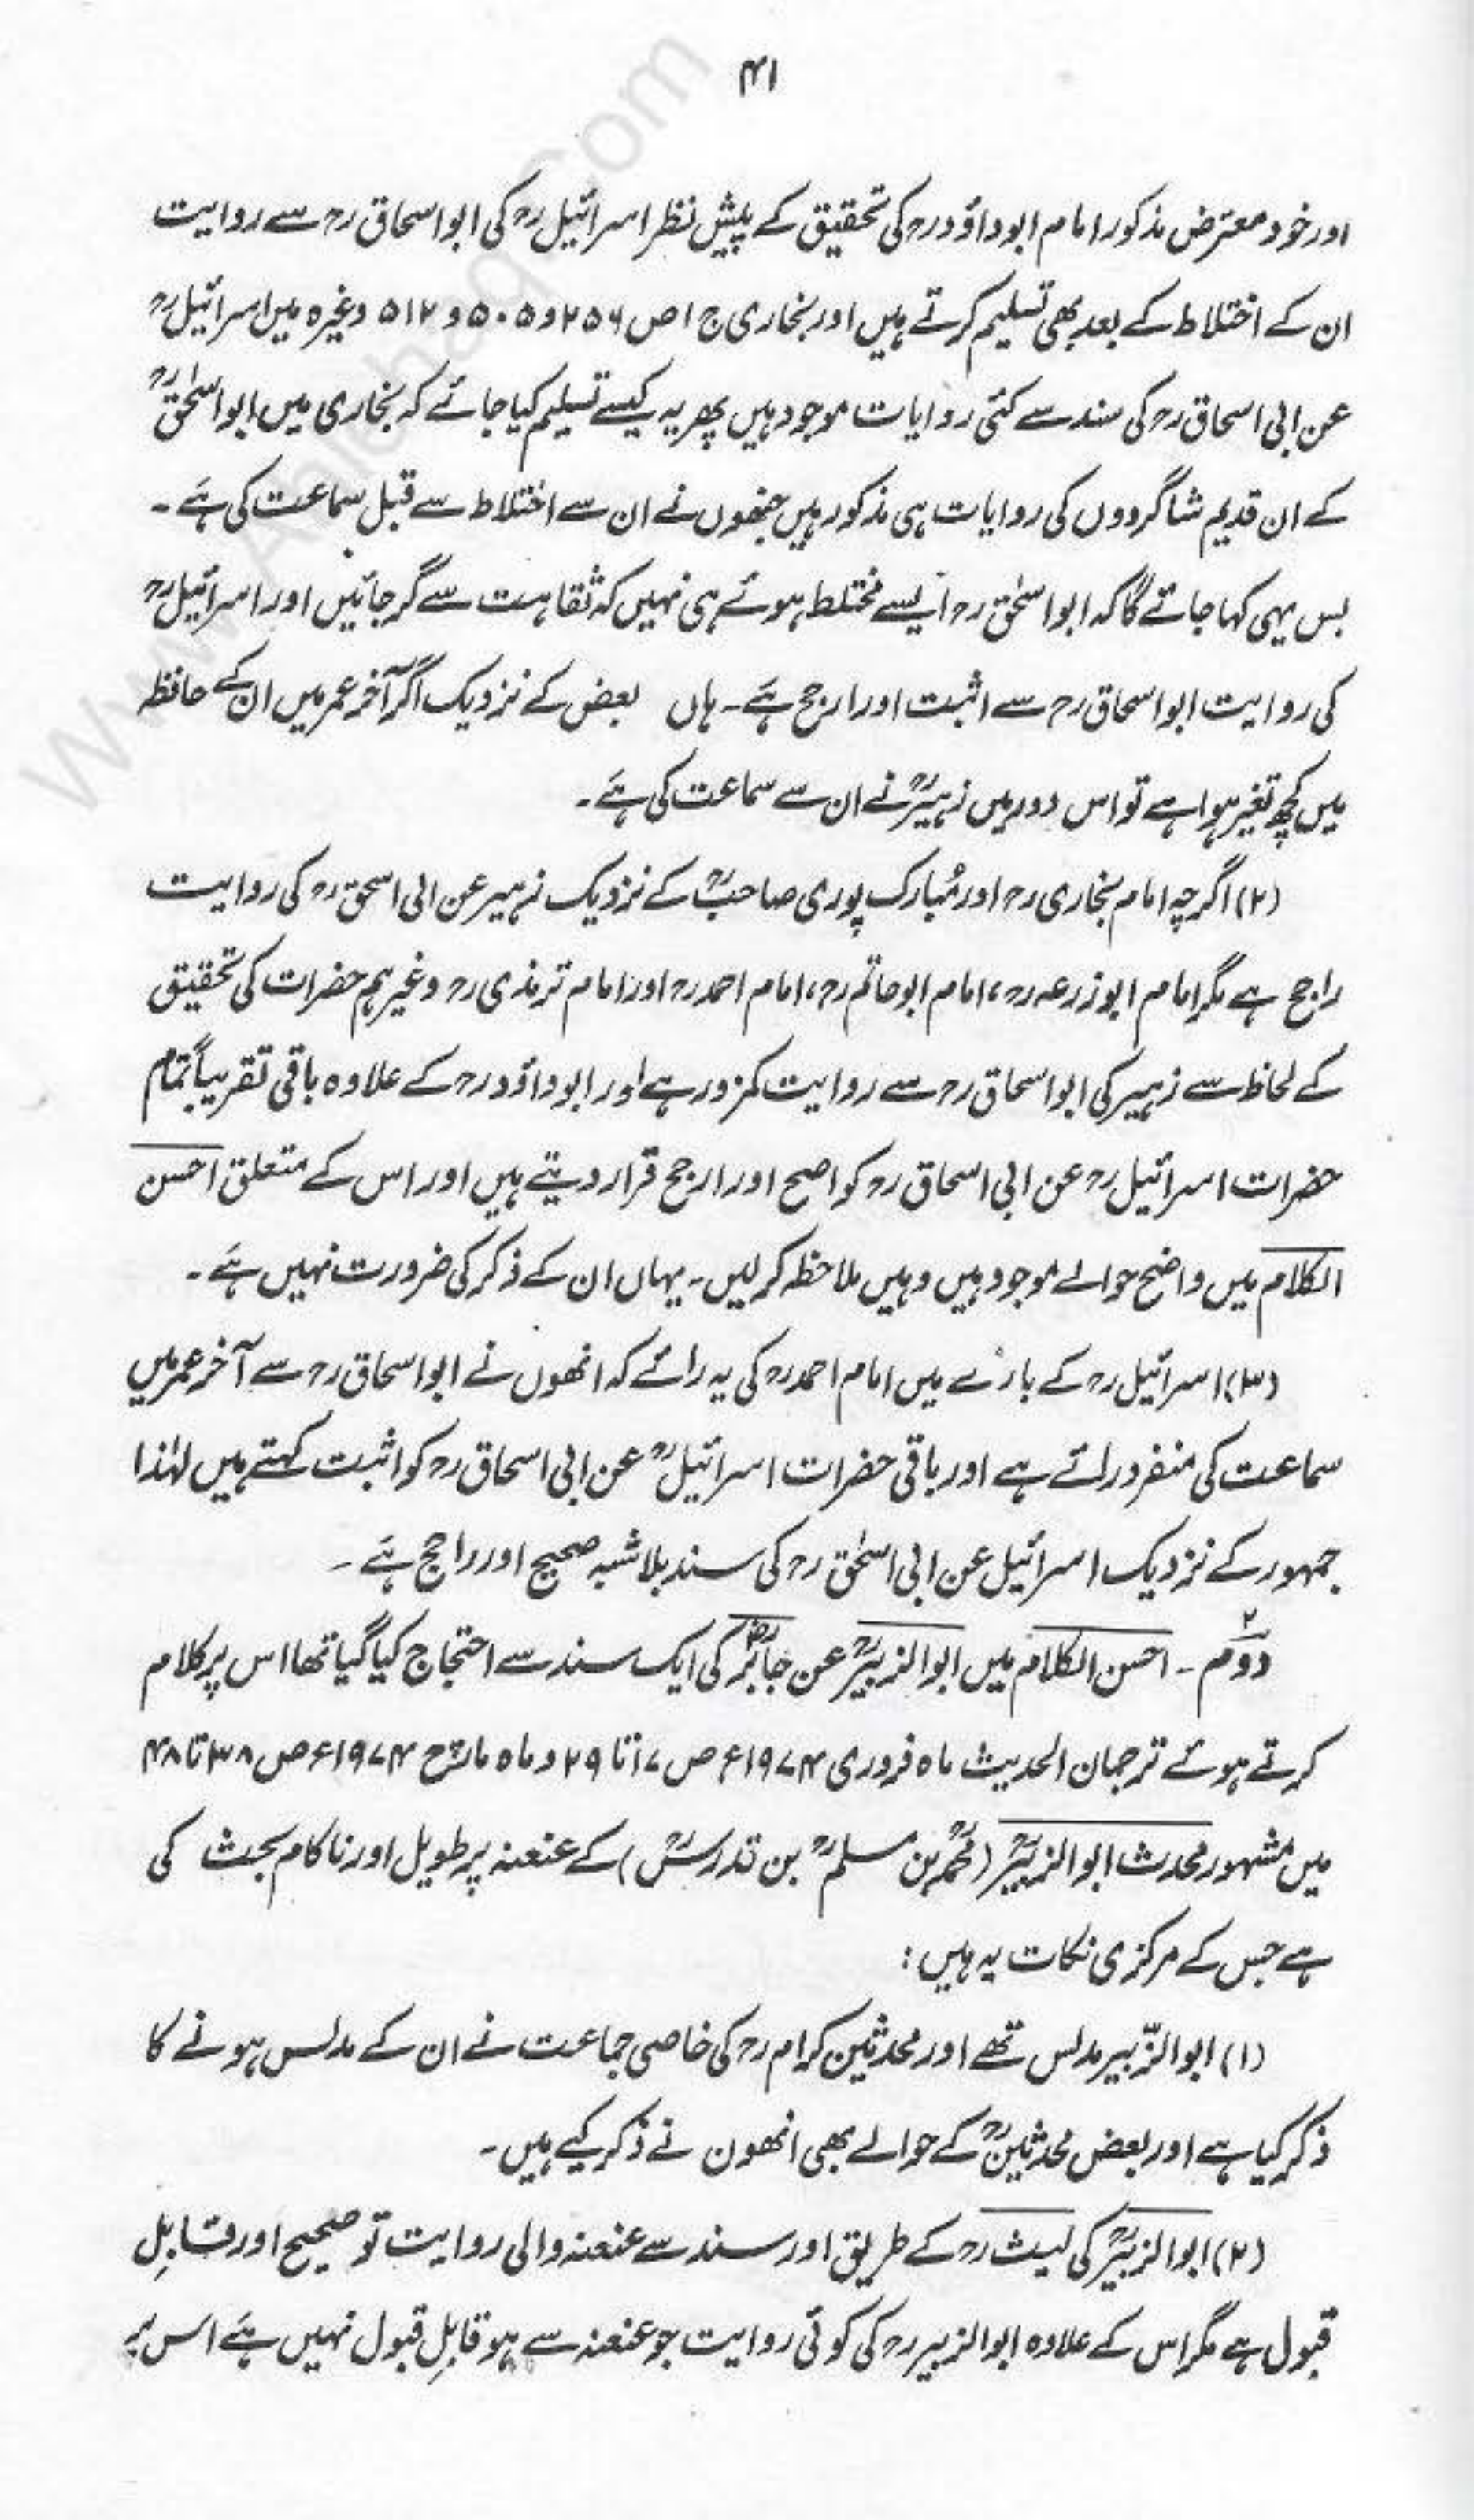 ۴۱
اور خود معترض مذکور امام ابو داؤدرح کی تحقیق کے پیش نظر اسرائیلرح کی ابو اسحاق رح سے روایت
ان کے اختلاط کے بعد بھی تسلیم کرتے ہیں اور بخاری ج ۱ ص ۲۵۶ و ۵۰۵ و ۵۱۲ وغیرہ میں اسرائیلرح
عن ابی اسحاق رح کی سند سے کئی روایات موجود ہیں پھر یہ کیسے تسلیم کیا جائے کہ بخاری میں ابو اسحٰقرح
کے ان قدیم شاگردوں کی روایات ہی مذکور ہیں جنھوں نے ان سے اختلاط سے قبل سماعت کی ہے۔
بس یہی کہا جائے گا کہ ابو اسحٰق رح ایسے مختلط ہوئے ہی نہیں کہ ثقاہت سے گر جائیں اور اسرائیلرح
کی روایت ابو اسحاق رح سے اثبت اور ارجح ہے۔ ہاں بعض کے نزدیک اگر آخر عمر میں ان کے حافظہ
میں کچھ تغیر ہوا ہے تو اس دور میں زہیررح نے ان سے سماعت کی ہے۔
(۲) اگرچہ امام بخاری رح اور مُبارک پوری صاحبرح کے نزدیک زہیر عن ابی اسحق رح کی روایت
راجح ہے مگر امام ابو زرعہ رح، امام ابو حاتم رح، امام احمد رح اور امام ترمذی رح وغیرہم حضرات کی تحقیق
کے لحاظ سے زہیر کی ابو اسحاق رح سے روایت کمزور ہے اور ابو داؤد رح کے علاوہ باقی تقریباً تمام
حضرات اسرائیل رح عن ابی اسحاق رح کو اصح اور ارجح قرار دیتے ہیں اور اس کے متعلق احسن
الکلام میں واضح حوالے موجود ہیں وہیں ملاحظہ کر لیں۔ یہاں ان کے ذکر کی ضرورت نہیں ہے۔
(۳) اسرائیل رح کے بارے میں امام احمد رح کی یہ رائے کہ انھوں نے ابو اسحاق رح سے آخر عمر میں
سماعت کی منفرد رائے ہے اور باقی حضرات اسرائیلرح عن ابی اسحاق رح کو اثبت کہتے ہیں لہٰذا
جمہور کے نزدیک اسرائیل عن ابی اسحٰق رح کی سند بلا شبہ صحیح اور راجح ہے۔
۲
دوم ۔ احسن الکلام میں ابو الزبیررح عن جابررض کی ایک سند سے احتجاج کیا گیا تھا اس پر کلام
کرتے ہوئے ترجمان الحدیث ماہ فروری ۱۹۷۴ء ص ۱۷ تا ۲۹ و ماہ مارچ ۱۹۷۴ء ص ۳۸ تا ۴۸
میں مشہور محدث ابو الزبیررح (محمدرح بن مسلمرح بن تدرسرح) کے عنعنہ پر طویل اور ناکام بحث کی
ہے جس کے مرکزی نکات یہ ہیں:
(۱) ابو الزّبیر مدلس تھے اور محدثین کرام رح کی خاصی جماعت نے ان کے مدلس ہونے کا
ذکر کیا ہے اور بعض محدثینرح کے حوالے بھی انھون نے ذکر کیے ہیں۔
(۲) ابو الزبیررح کی لیث رح کے طریق اور سند سے عنعنہ والی روایت تو صحیح اور قابلِ
قبول ہے مگر اس کے علاوہ ابو الزبیر رح کی کوئی روایت جو عنعنہ سے ہو قابلِ قبول نہیں ہے اس پر